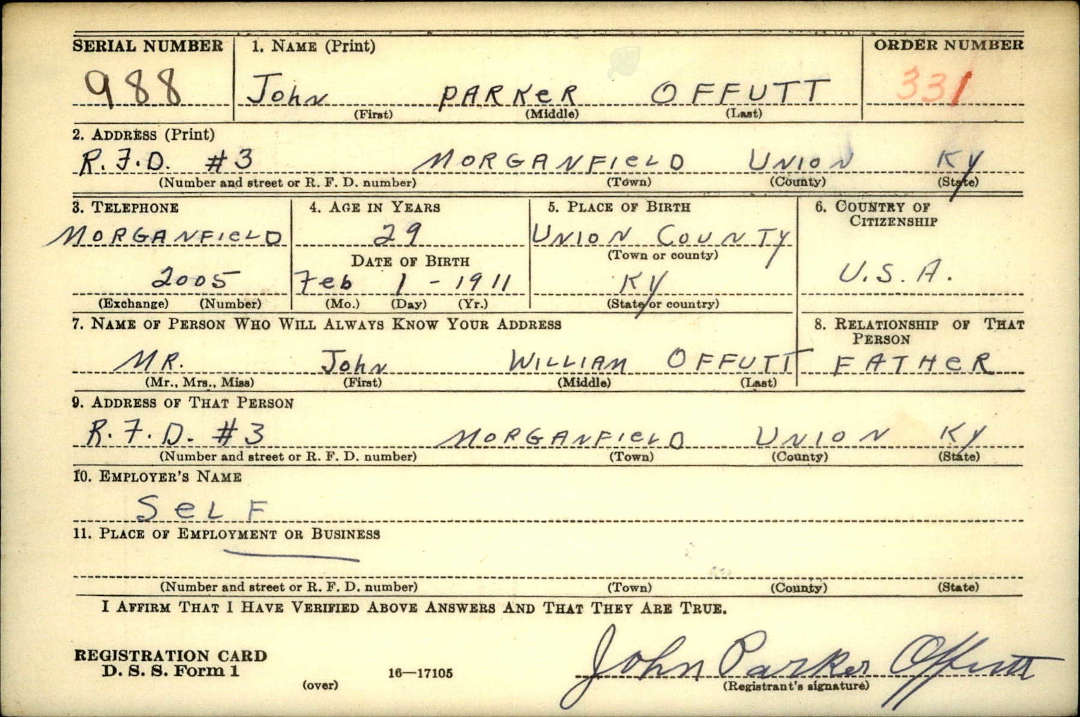 SERIAL NUMBER 1. NAME (Print) ORDER NUMBER
988 John PARKER OFFUTT 331
(First) (Middle) (Last)
2. ADDRESS (Print)
R.F.D. #3 MORGANFIELD UNION KY
(Number and street or R. F. D. number) (Town) (County) (State)
3. TELEPHONE 4. AGE IN YEARS 5. PLACE OF BIRTH 6. COUNTRY OF CITIZENSHIP
MORGANFIELD 29 UNION COUNTY
DATE OF BIRTH (Town or county)
2005 Feb 1 - 1911 KY U.S.A.
(Exchange) (Number) (Mo.) (Day) (Yr.) (State or country)
7. NAME OF PERSON WHO WILL ALWAYS KNOW YOUR ADDRESS 8. RELATIONSHIP OF THAT PERSON
MR. John WILLIAM OFFUTT FATHER
(Mr., Mrs., Miss) (First) (Middle) (Last)
9. ADDRESS OF THAT PERSON
R.F.D. #3 MORGANFIELD UNION KY
(Number and street or R. F. D. number) (Town) (County) (State)
10. EMPLOYER'S NAME
SELF
11. PLACE OF EMPLOYMENT OR BUSINESS
(Number and street or R. F. D. number) (Town) (County) (State)
I AFFIRM THAT I HAVE VERIFIED ABOVE ANSWERS AND THAT THEY ARE TRUE.
REGISTRATION CARD
D. S. S. Form 1 16—17105 John Parker Offutt
(over) (Registrant's signature)